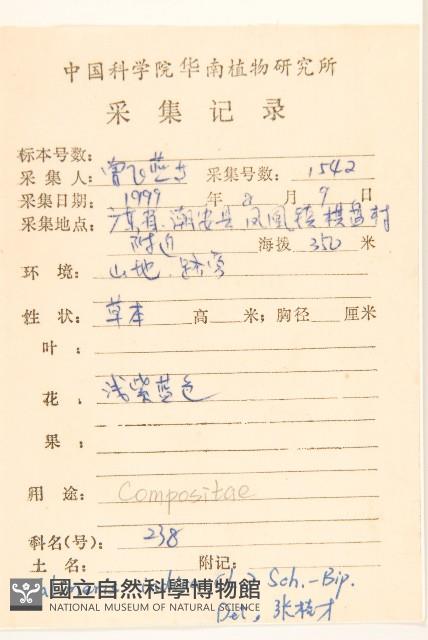 中国科学院华南植物研究所
采集记录
标本号数:
采集人: 曾飞燕 采集号数: 1542
采集日期: 1999 年 8 月 9 日
采集地点: 广东省 潮安县 凤凰镇 棋盘村
附近 海拨 350 米
环境: 山地
性状: 草本 高 米; 胸径 厘米
叶:
花: 浅紫蓝色
果:
用途: Compositae
科名(号): 238
土名: 附记:
Sch.-Bip.
國立自然科學博物館
NATIONAL MUSEUM OF NATURAL SCIENCE
Det. 张桂才